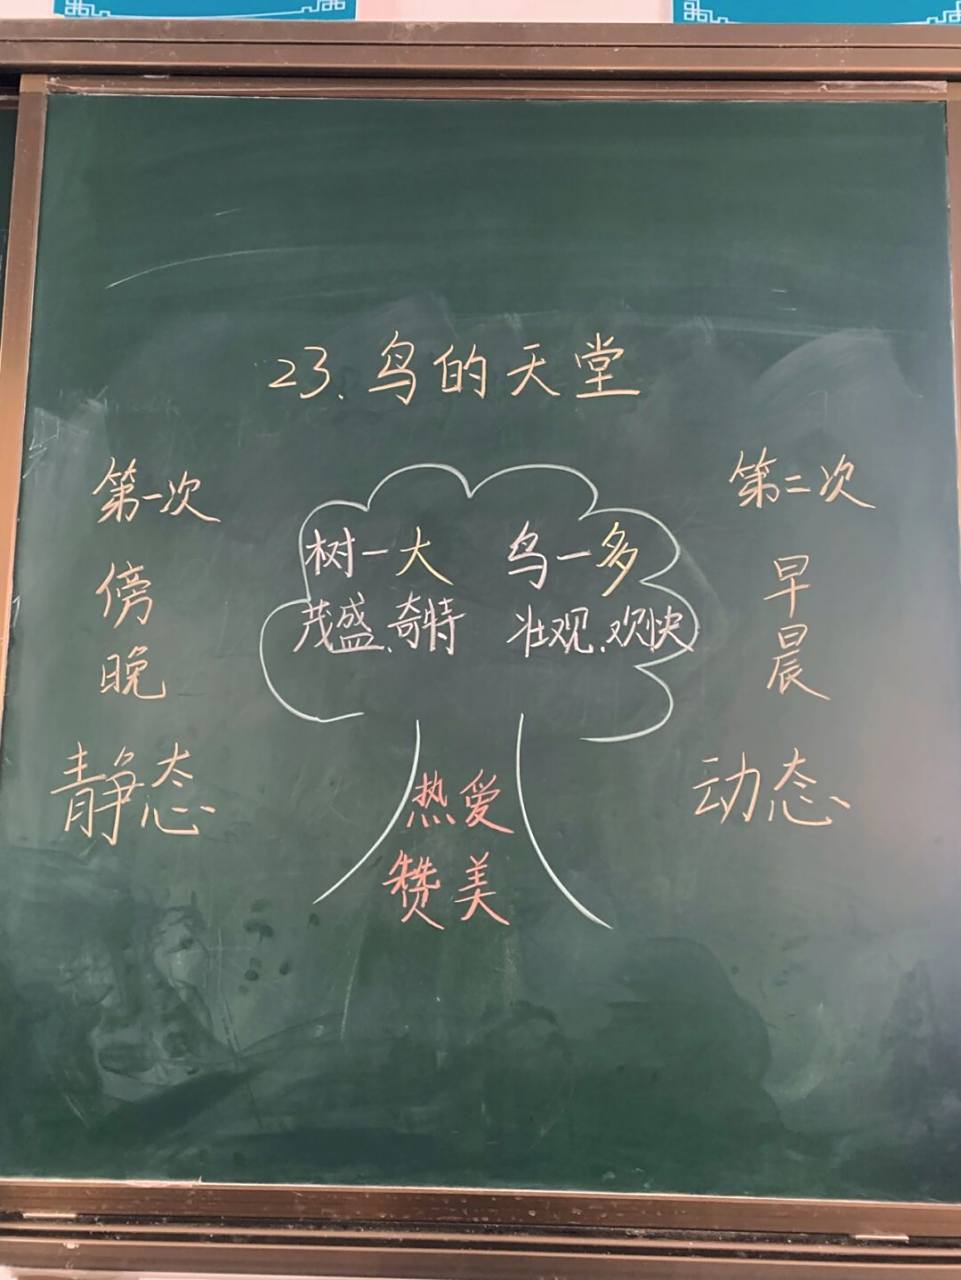 23.鸟的天堂
第一次
傍
晚
静态
树一大 鸟一多
茂盛.奇特 壮观.欢快
热爱
赞美
第二次
早
晨
动态